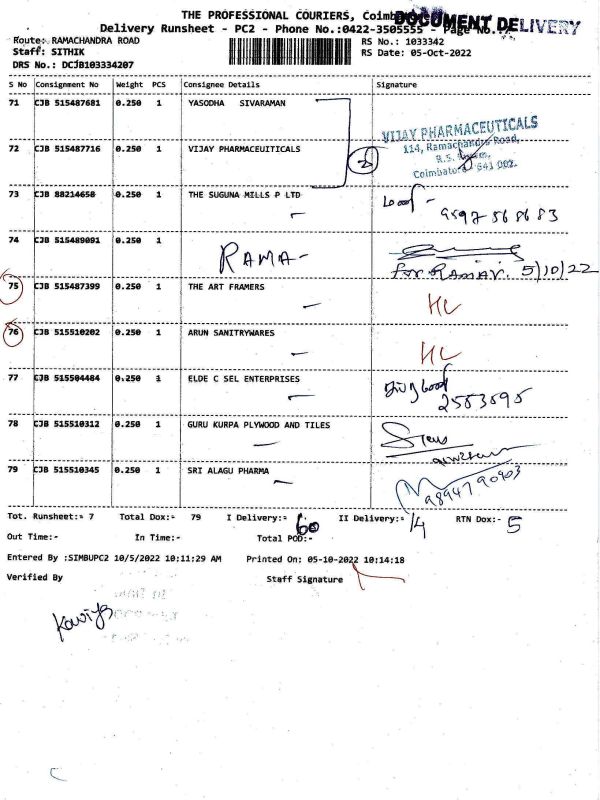 THE PROFESSIONAL COURIERS,
DOCUMENT DELIVERY
Delivery Runsheet - PC2 - Phone No.:0422-3505555 - Page No.
Route: RAMACHANDRA ROAD
RS No.: 1033342
Staff: SITHIK
RS Date: 05-Oct-2022
DRS No.: DCJB103334207
S No Consignment No Weight PCS Consignee Details Signature
71 CJB 515487681 0.250 1 YASODHA SIVARAMAN
VIJAY PHARMACEUTICALS
114, Ramachandra Road,
72 CJB 515487716 0.250 1 VIJAY PHARMACEUITICALS
R.S.
Coimbatore 641 002.
73 CJB 88214658 0.250 1 THE SUGUNA MILLS P LTD
74 CJB 515489091 0.250 1
RAMA-
5/10/22
75 CJB 515487399 0.250 1 THE ART FRAMERS
HL
76 CJB 515510202 0.250 1 ARUN SANITRYWARES
HL
77 CJB 515504484 0.250 1 ELDE C SEL ENTERPRISES
78 CJB 515510312 0.250 1 GURU KURPA PLYWOOD AND TILES
79 CJB 515510345 0.250 1 SRI ALAGU PHARMA
Tot. Runsheet:- 7 Total Dox:- 79 I Delivery:- 60 II Delivery:- 14 RTN Dox:- 5
Out Time:- In Time:- Total POD:-
Entered By :SIMBUPC2 10/5/2022 10:11:29 AM Printed On: 05-10-2022 10:14:18
Verified By Staff Signature